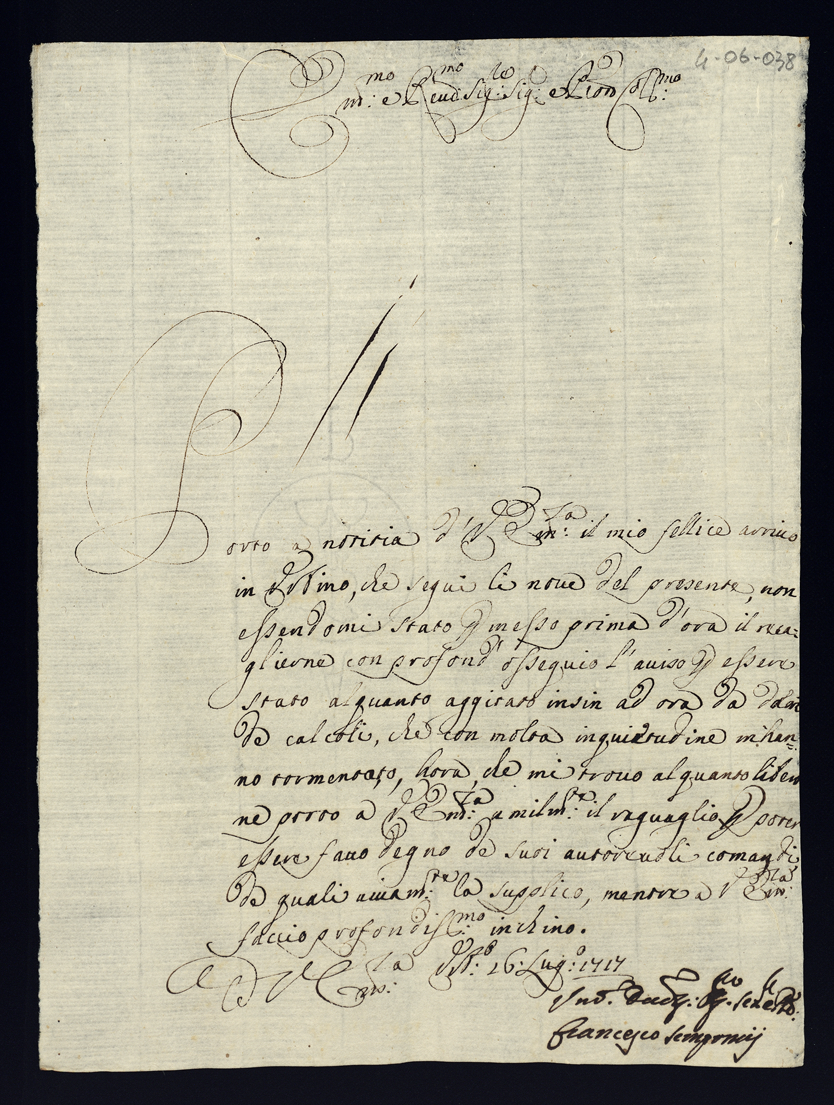 4-06-038
Em:mo e Reud:mo Sig:re Sig:re e Pron Coll:mo
Porto a notitia d'V Em:za il mio fellice arriuo
in Vrbino, che segui li noue del presente, non
essendomi stato permesso prima d'ora il racca-
glierne con profond' osseguio l'auiso per essere
stato alquanto aggitato insin ad ora da dolori
de calcoli, che con molta inquietudine mi han-
no tormentato, hora, che mi trouo alquanto libero
ne porto a V Em:za umilm:te il raguaglio per poter
essere fatto degno de suoi autoreuoli comandi
de quali uiuam:te la supplico, mentre a V Em:za
faccio profondiss:mo inchino.
A D V Em:za Vrb:o 16: Lug:o 1717
Francesco Sempronij